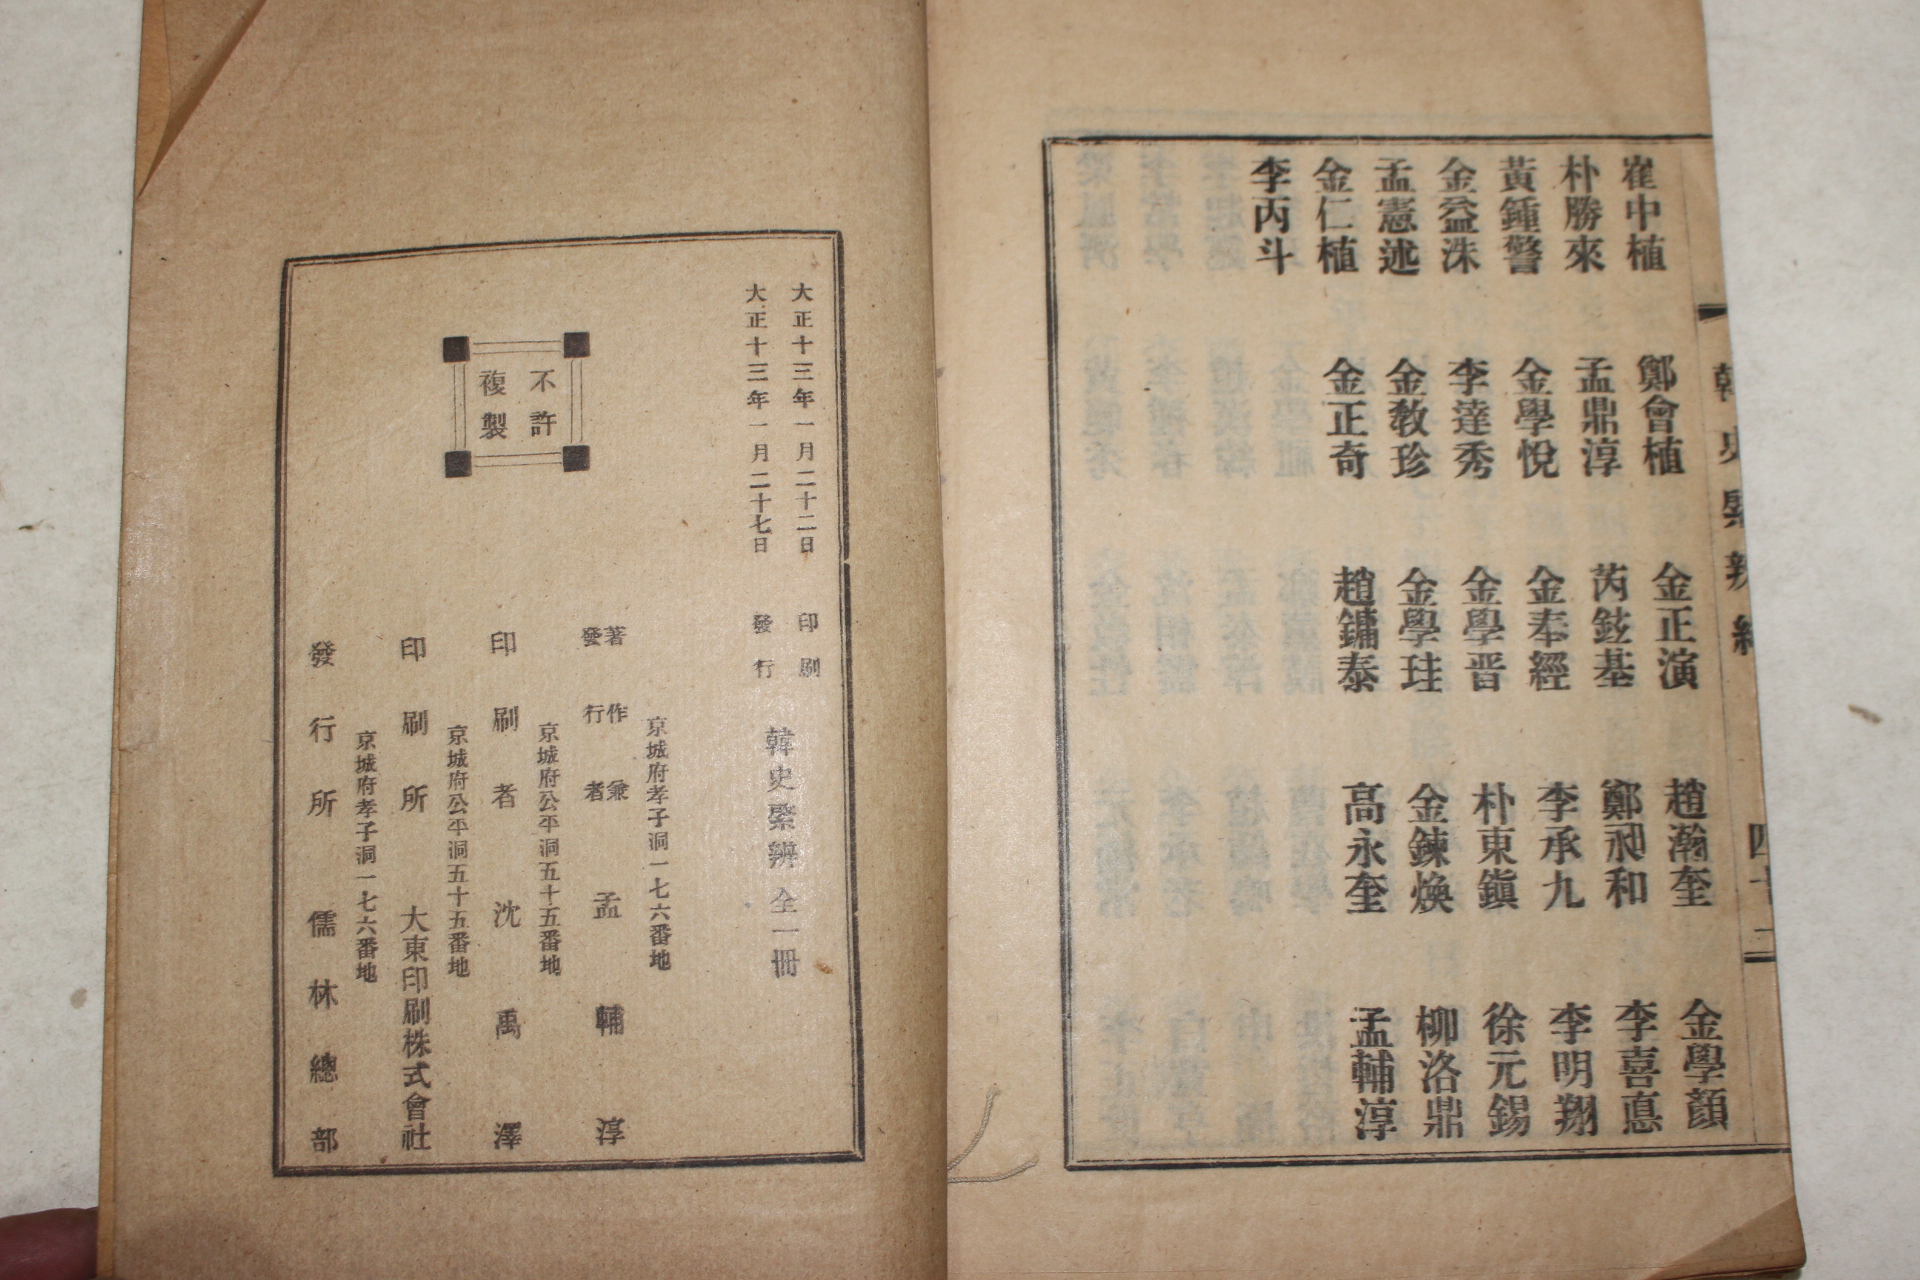 韓史綮辨 終
四十二
崔中植 鄭會植 金正演 趙瀚奎 金學顔
朴勝來 孟鼎淳 芮鉉基 鄭昶和 李喜悳
黃鍾警 金學悅 金奉經 李承九 李明翔
金益洙 李達秀 金學晋 朴東鎭 徐元錫
孟憲述 金敎珍 金學珪 金鍊煥 柳洛鼎
金仁植 金正奇 趙鏞泰 高永奎 孟輔淳
李丙斗
大正十三年一月二十二日 印刷
大正十三年一月二十七日 發行
韓史綮辨 全一冊
不許
複製
京城府孝子洞一七六番地
著作兼
發行者 孟輔淳
京城府公平洞五十五番地
印刷者 沈禹澤
京城府公平洞五十五番地
印刷所 大東印刷株式會社
京城府孝子洞一七六番地
發行所 儒林總部